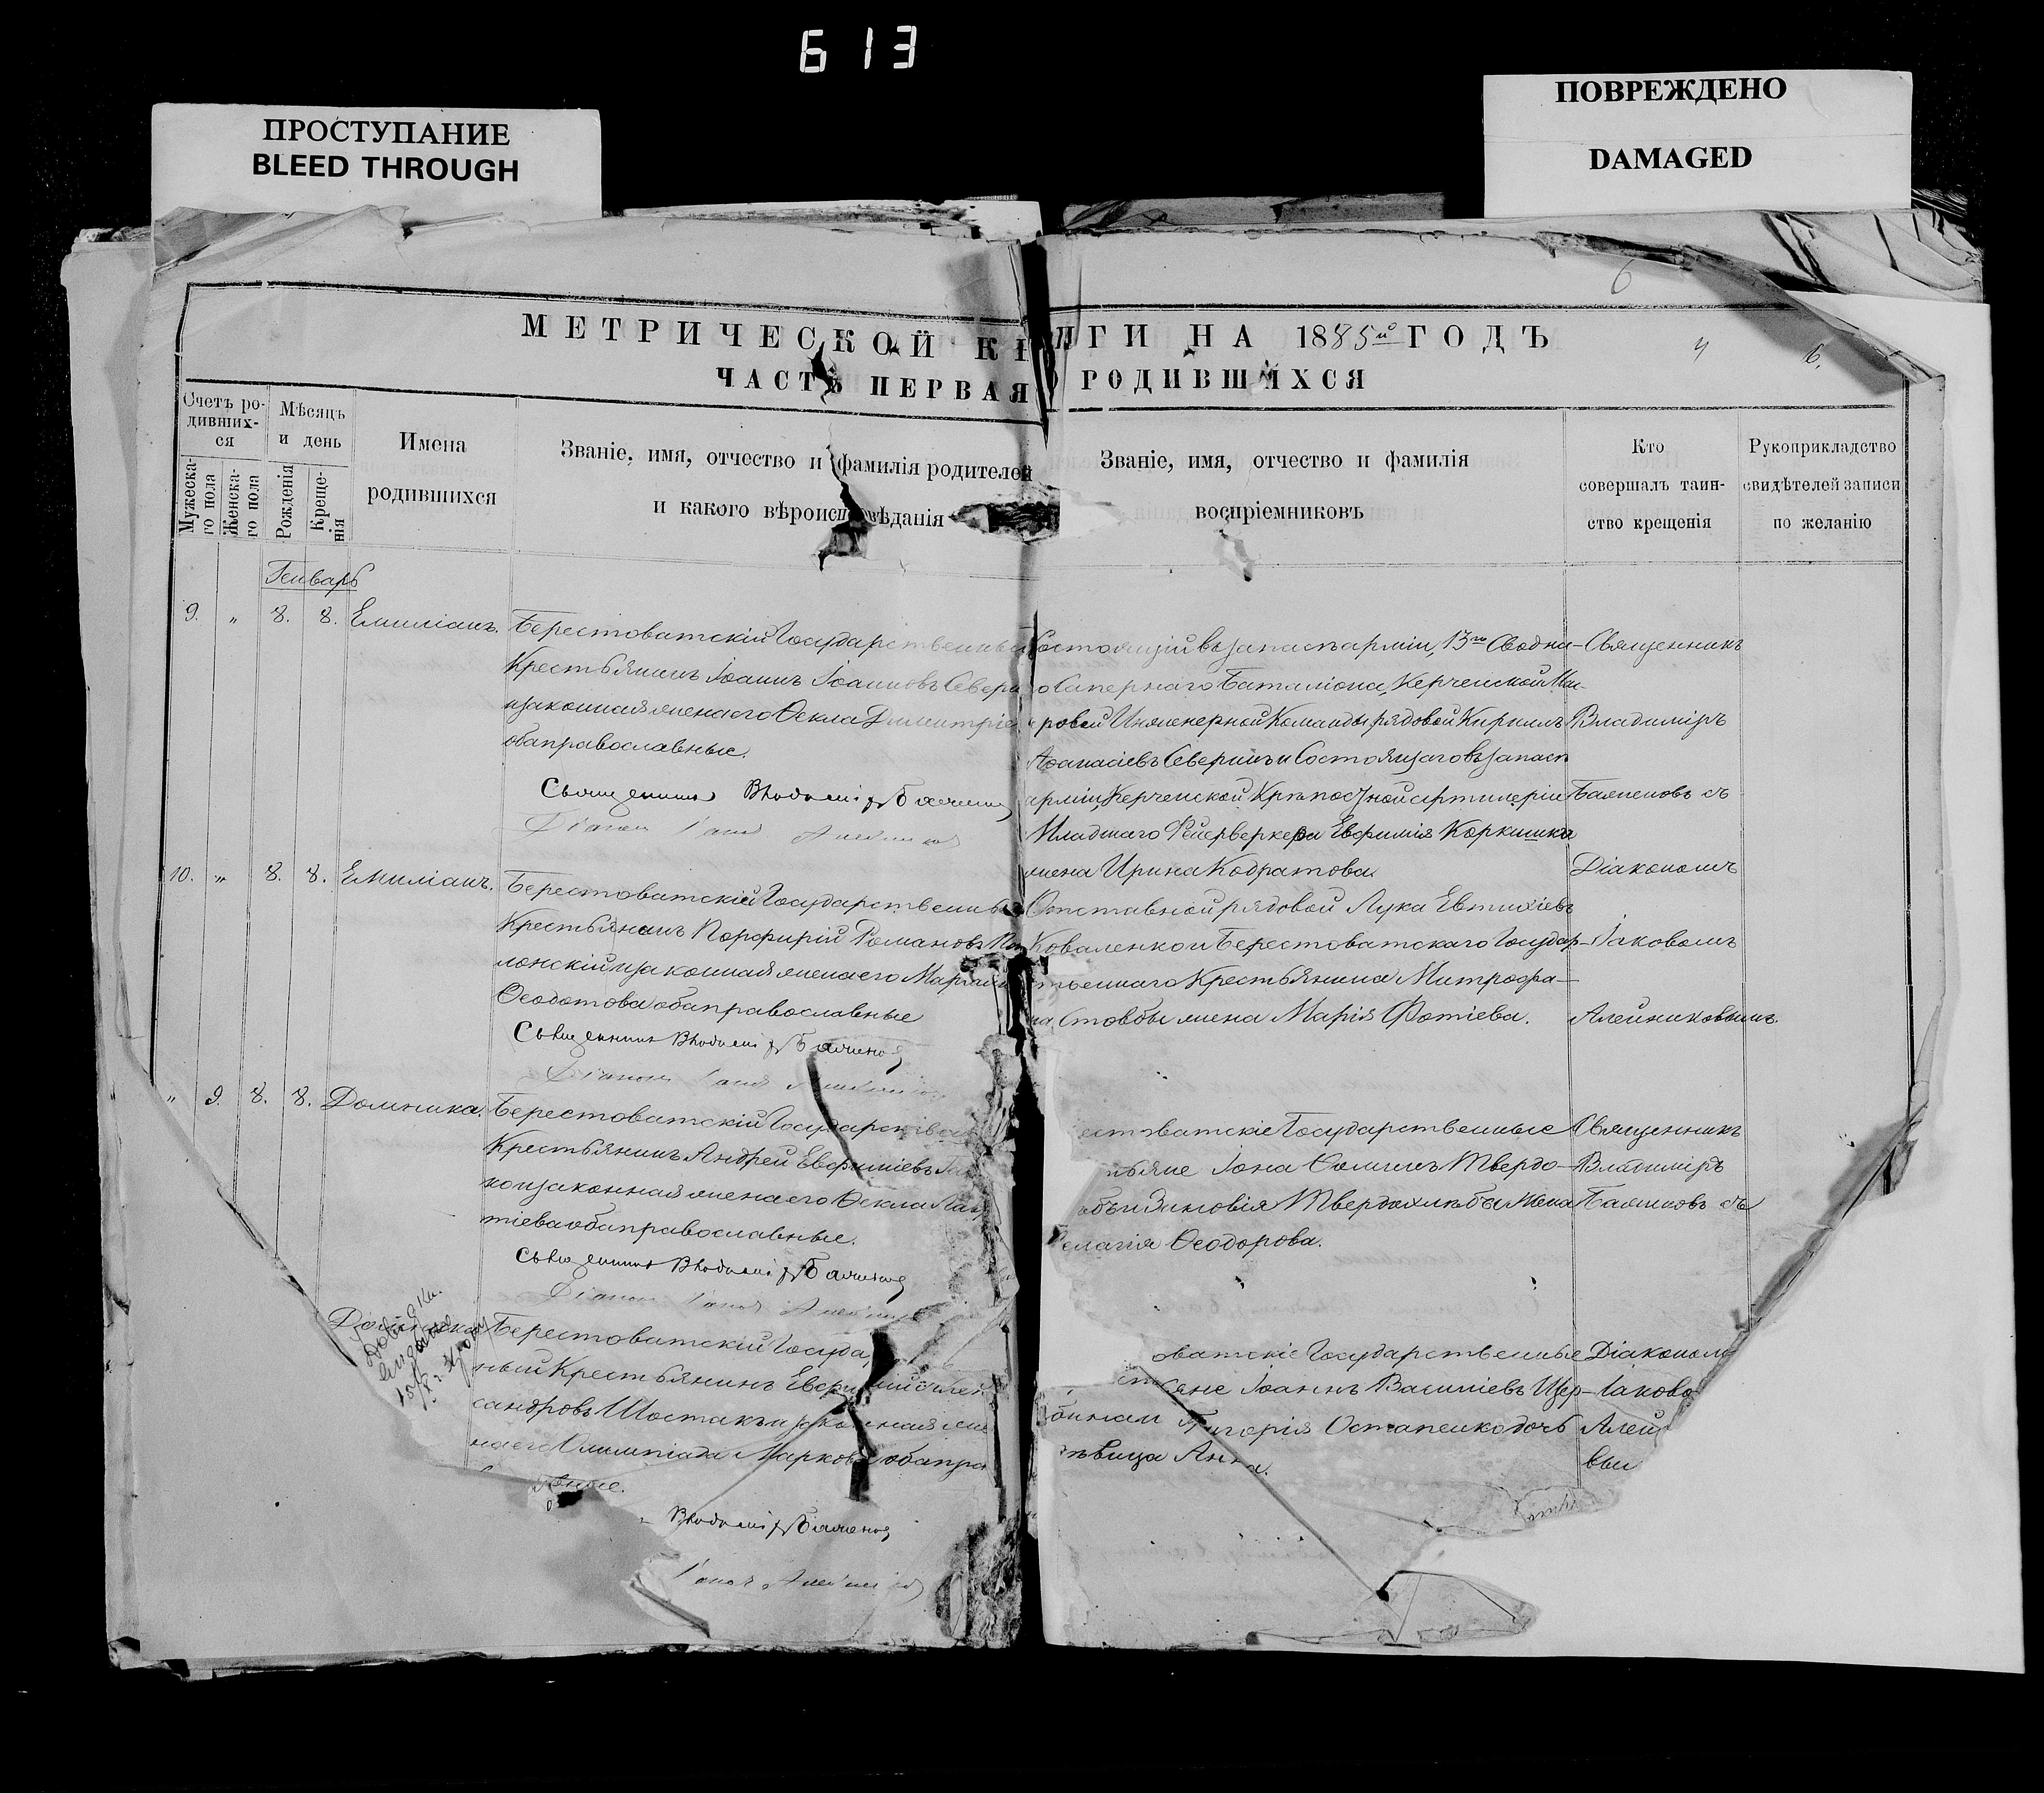 613
ПРОСТУПАНИЕ
BLEED THROUGH
ПОВРЕЖДЕНО
DAMAGED
6
МЕТРИЧЕСКОЙ КНИГИ НА 1885й ГОДЪ
4
6.
ЧАСТЬ ПЕРВАЯ О РОДИВШИХСЯ
Счетъ ро-
дивших-
ся
Мужеска-
го пола
Женска-
го пола
Мѣсяцъ
и день
Рожденія
Креще-
нія
Имена
родившихся
Званіе, имя, отчество и фамилія родителей
и какого вѣроисповѣданія
Званіе, имя, отчество и фамилія
воспріемниковъ
Кто
совершалъ таин-
ство крещенія
Рукоприкладство
свидѣтелей записи
по желанію
Генварь
9. „ 8. 8. Емиліанъ.
Берестоватскій Государственный
Крестьянинъ Іоаннъ Іоанновъ Севери
и законная жена его Ѳекла Димитріе
оба православные.
Священникъ Владиміръ Баженовъ
Діаконъ Іаковъ Алейниковъ
Состоящій въ запасѣ арміи, 13го Сводна-
го Сапернаго Баталіона, Керченской Ми-
ровой Инженерной Команды рядовой Кириллъ
Аѳанасіевъ Северинъ и Состоящаго въ запасѣ
арміи, Керченской Крѣпостной артилеріи
Младшаго Фейерверкера Евфимія Коркишка
жена Ирина Кодратова.
Священникъ
Владиміръ
Баженовъ съ
Діакономъ
Іаковомъ
Алейниковымъ.
10. „ 8. 8. Емиліанъ.
Берестоватскій Государственный
Крестьянинъ Порфирій Романовъ
лонскій и законная жена его Марѳа
Ѳеодотова оба православные
Священникъ Владиміръ Баженовъ
Діаконъ Іаковъ Алейниковъ
Отставной рядовой Лука Евтихіевъ
Коваленко и Берестоватскаго Государ-
ственнаго Крестьянина Митрофа-
на Стовбы жена Марія Фотіева.
„ 9. 8. 8. Домника.
Берестоватскій Государствен
Крестьянинъ Андрей Евфиміевъ
ко и законная жена его Ѳекла
тіева оба православные.
Священникъ Владиміръ Баженовъ
Діаконъ Іаковъ Алейниковъ
естоватскіе Государственные
тьяне Іона Ѳоминъ Твердо-
бъ и Зиновія Твердохлѣба жена
елагія Ѳеодорова.
Священникъ
Владиміръ
Баженовъ съ
Домника
Берестоватскій Госуда
ный Крестьянинъ Евфимій Алек
сандровъ Шостакъ и законная же
на его Олимпіада Маркова оба пра
вные.
Владиміръ Баженовъ
Іаковъ Алейниковъ
оватскіе Государственные
стьяне Іоаннъ Василіевъ Щер-
бина и Григорія Остапенко дочь
дѣвица Анна.
Діакономъ
Іаково
Алей
вы